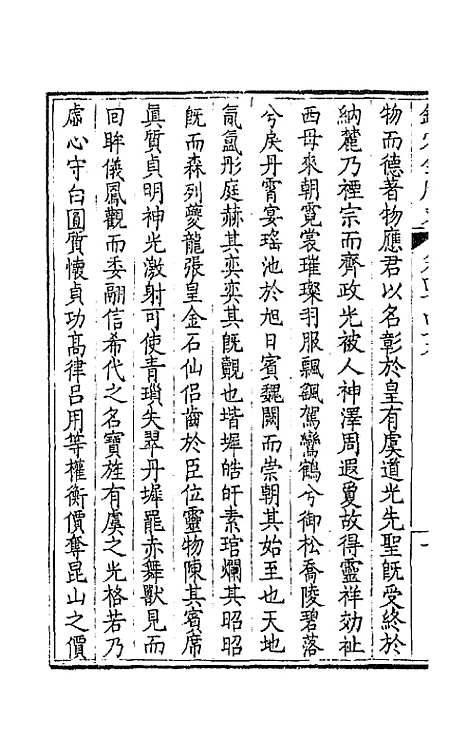 物而德著物應君以名彰於皇有虞道光先聖既受終於
納麓乃禋宗而齊政光被人神澤周遐夐故得靈祥効祉
西母來朝霓裳璀璨羽服飄飖駕鸞鶴兮御松喬陵碧落
兮戾丹霄宴瑤池於旭日賓魏闕而崇朝其始至也天地
氤氳形庭赫其奕奕其既覿也堦墀皓皓素琯爛其昭昭
既而森列夔龍張皇金石仙侣齒於臣位靈物陳其賓席
真質貞明神光激射可使青瑣失翠丹墀罷赤舞獸見而
回眸儀鳳觀而委翮信希代之名寶旌有虞之光格若乃
虛心守白圓質懷貞功髙律吕用等權衡價奪昆山之價